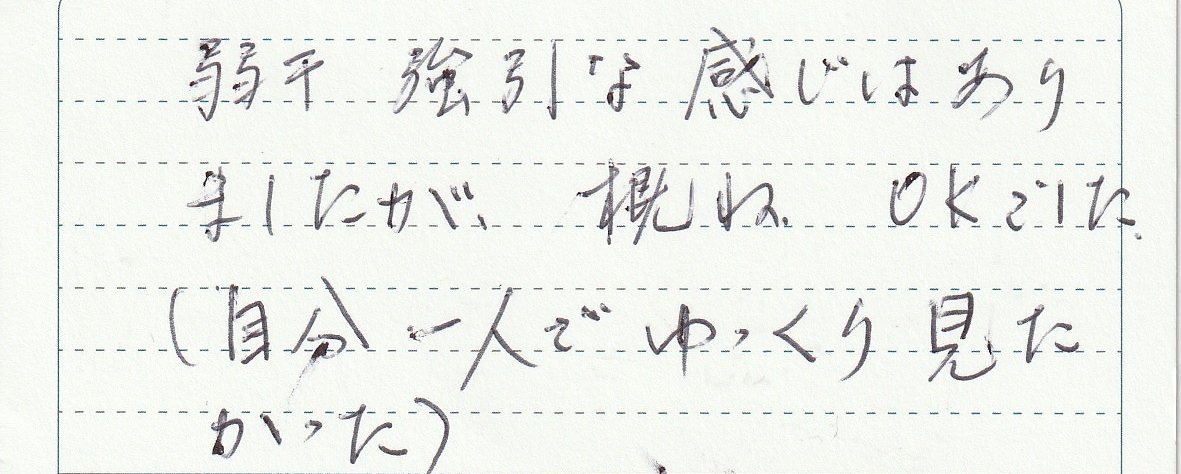 弱干 強引な感じはあり
ましたが、概ね OKでした。
(自分一人でゆっくり見た
かった)